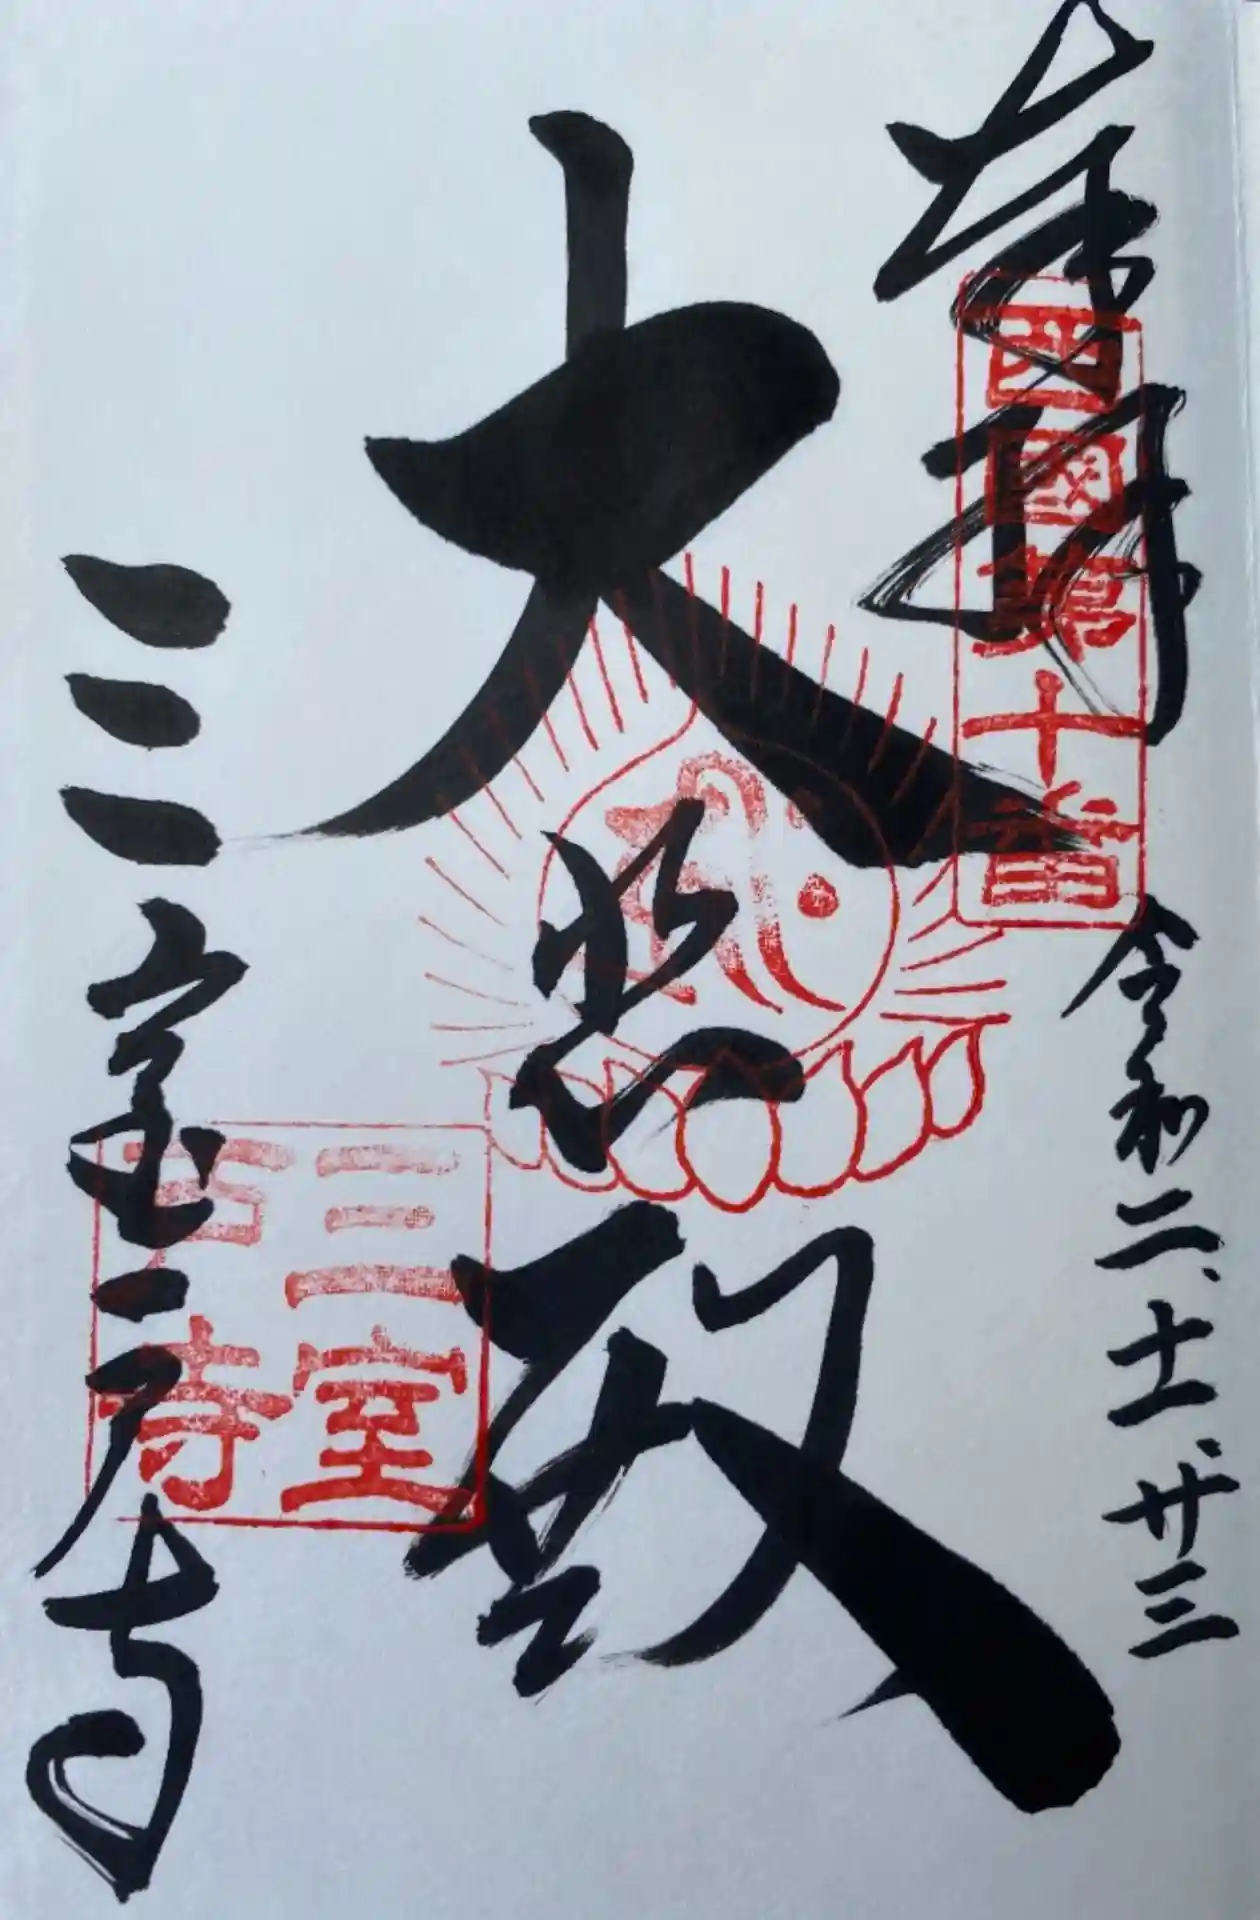 奉拝
西國第十番
令和二、十一、廿三
大悲殿
三室
戸寺
三室戸寺